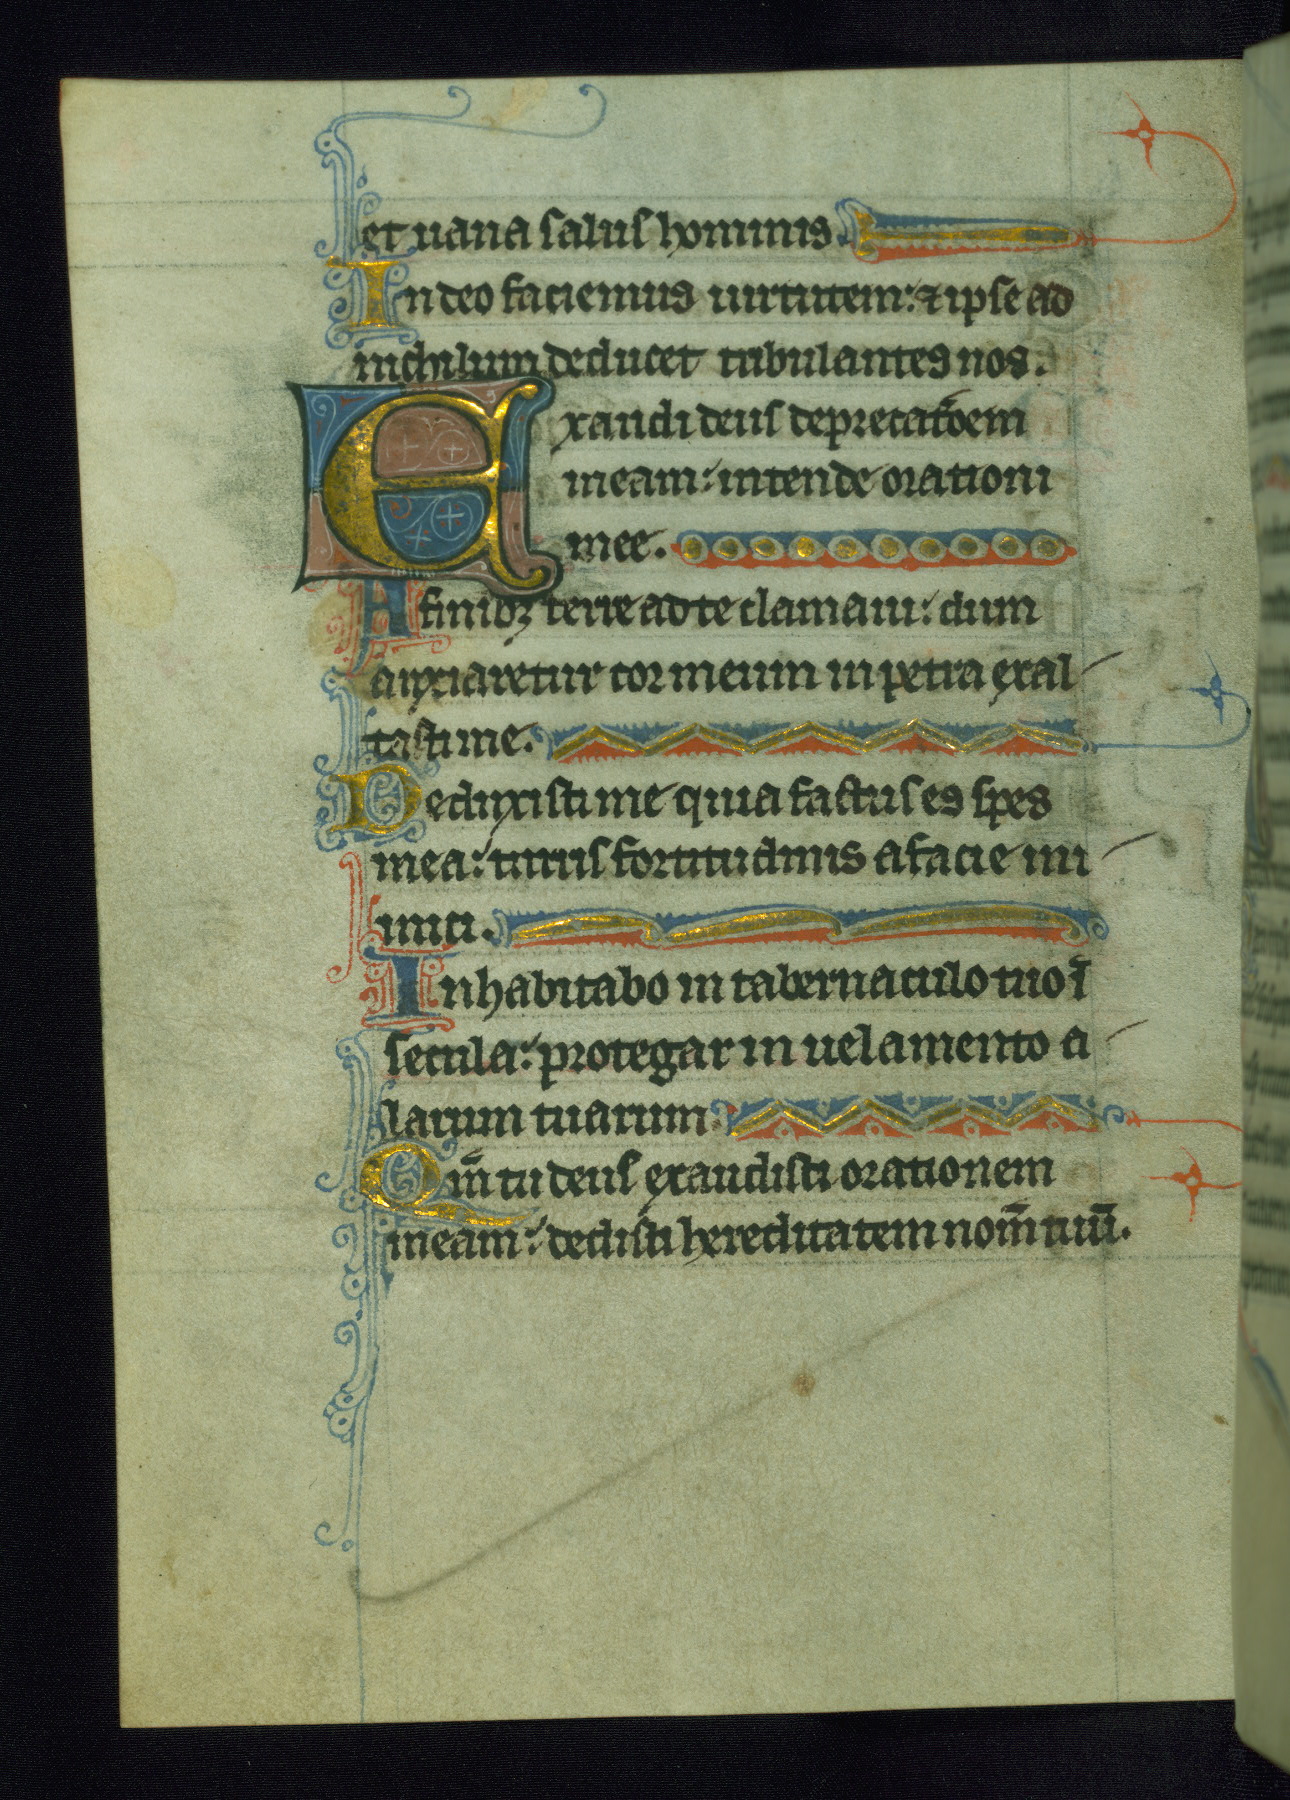 et uana salus hominis.
In deo faciemus uirtutem: ⁊ ipse ad
nichilum deducet tribulantes nos.
Exaudi deus deprecat̄oem
meam: intende orationi
mee.
A finibꝫ terre ad te clamaui: dum
anxiaretur cor meum in petra exal
tasti me.
Deduxisti me quia factus es spes
mea: turris fortitudinis a facie ini
imici.
Inhabitabo in tabernaculo tuo ī
secula: protegar in uelamento a
larum tuarum.
Qm̄ tu deus exaudisti orationem
meam: dedisti hereditatem nom̄ tuū.